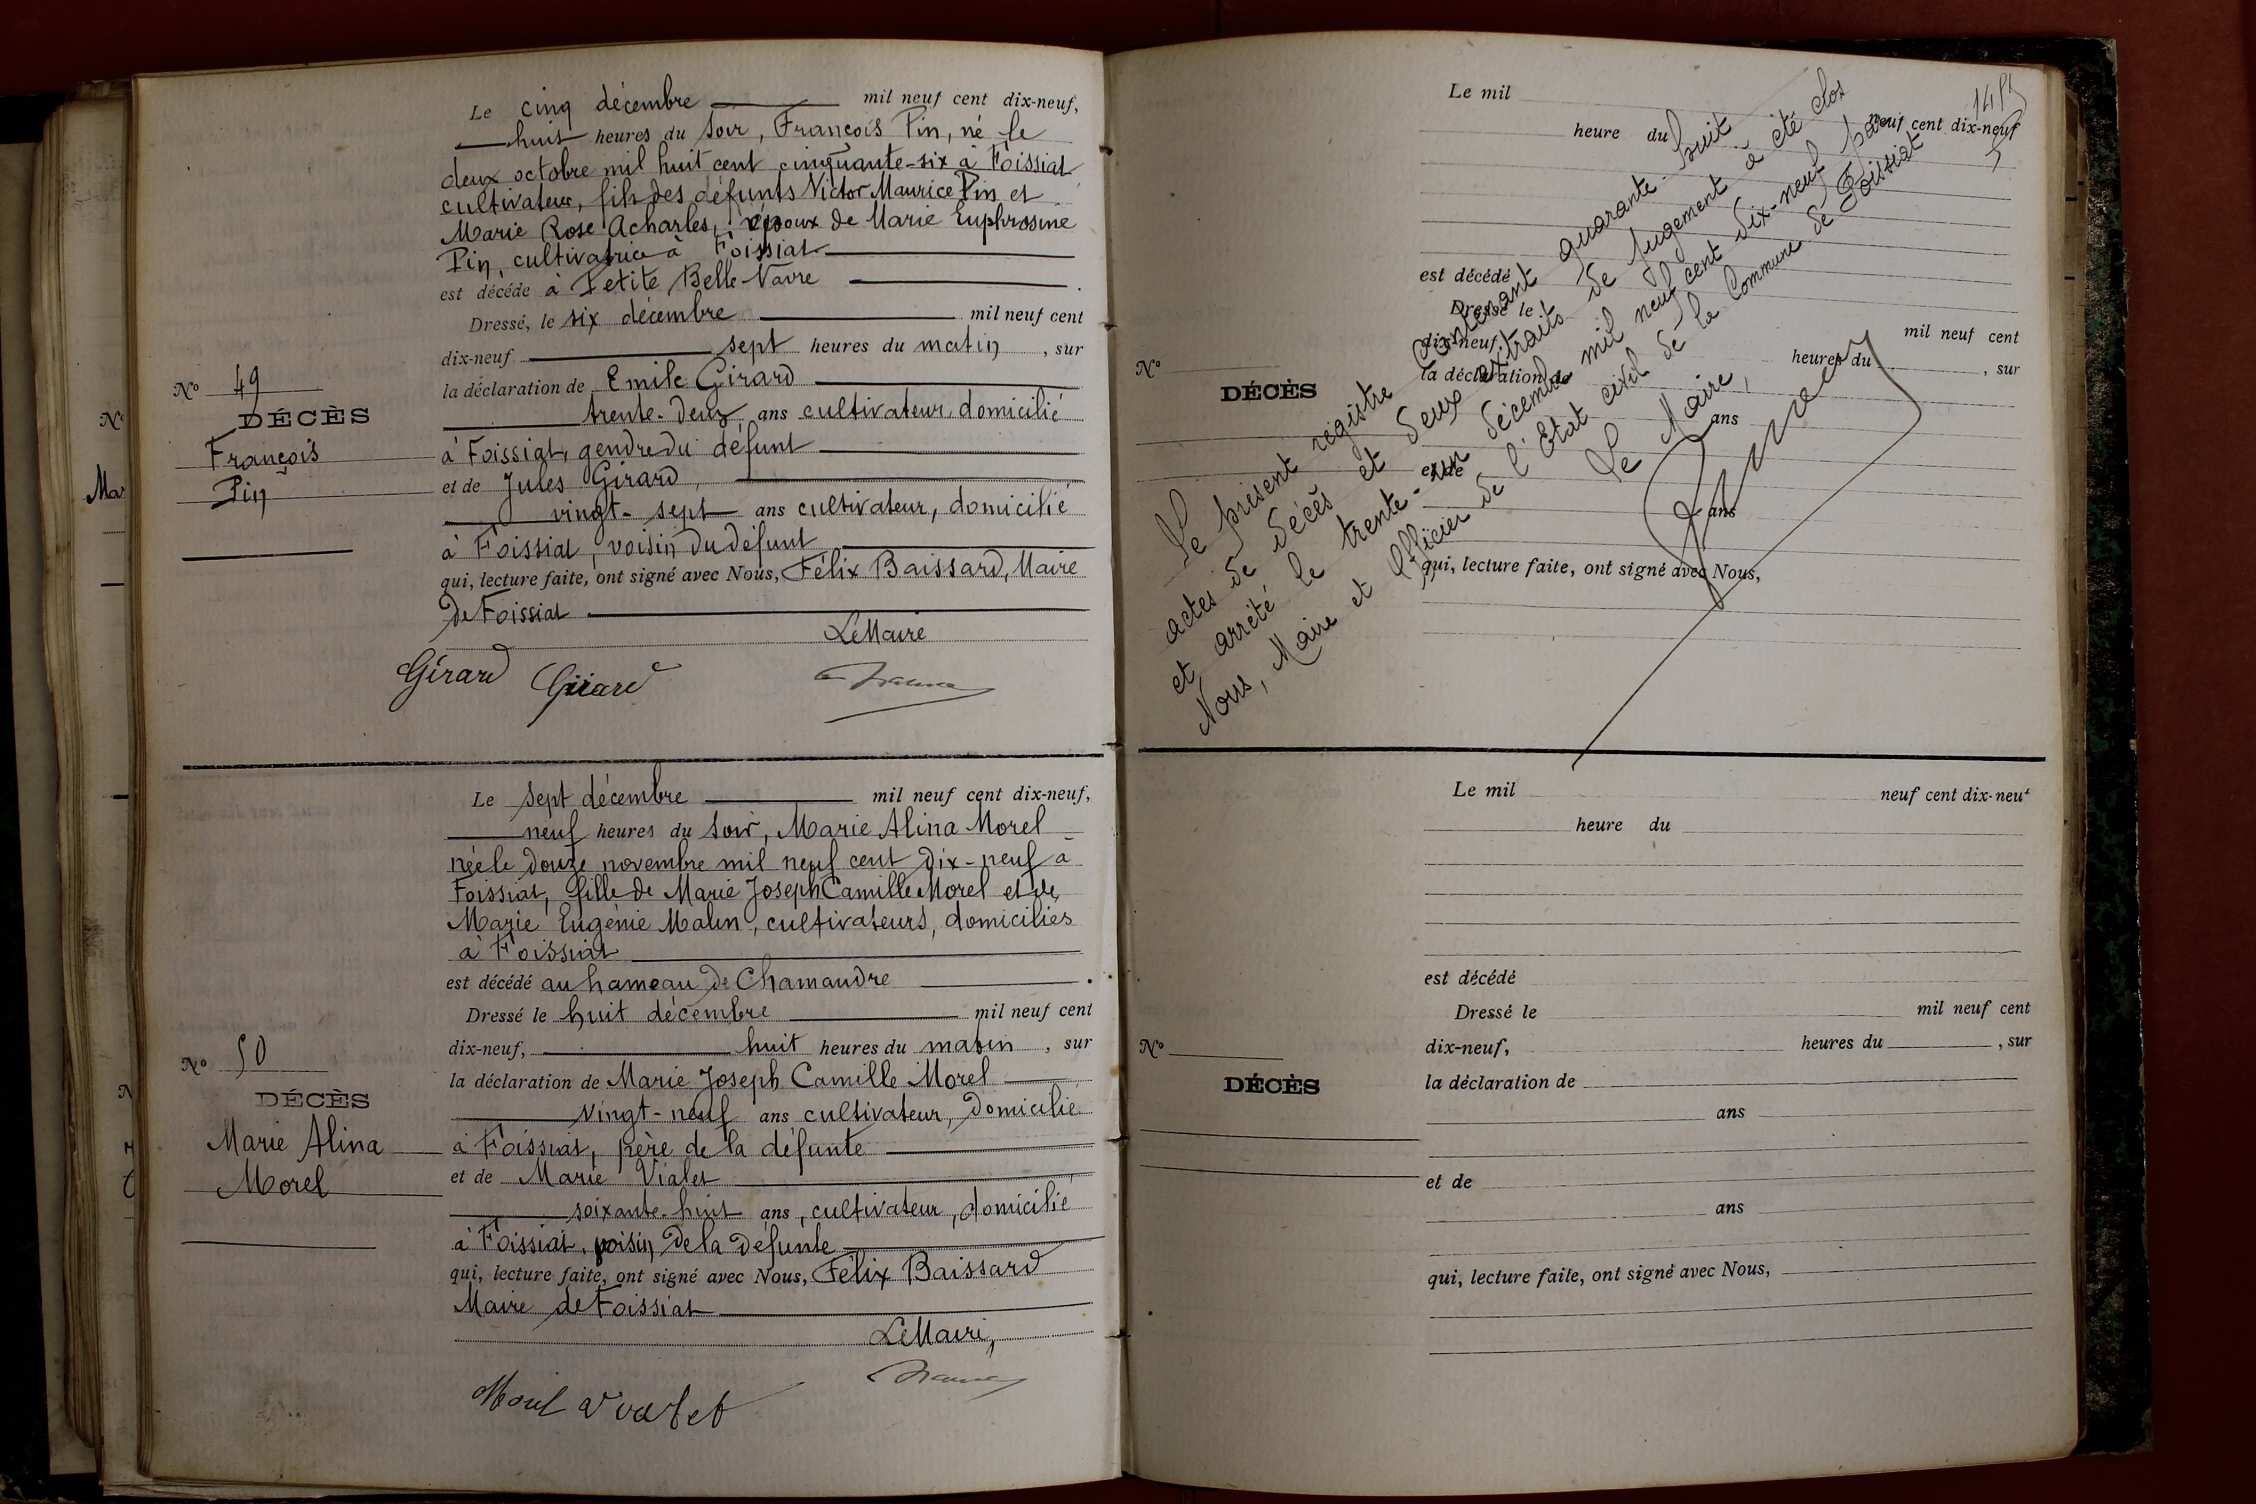 Le cinq décembre mil neuf cent dix-neuf,
huit heures du soir, François Pin, né le
deux octobre mil huit cent cinquante-six à Foissiat
cultivateur, fils des défunts Victor Maurice Pin et
Marie Rose Acharles, époux de Marie Euphrosine
Pin, cultivatrice à Foissiat
est décédé à Petite Belle-Vavre
Dressé, le six décembre mil neuf cent
dix-neuf sept heures du matin, sur
la déclaration de Emile Girard
trente-deux ans cultivateur, domicilié
à Foissiat, gendre du défunt
et de Jules Girard,
vingt-sept ans cultivateur, domicilié
à Foissiat, voisin du défunt
qui, lecture faite, ont signé avec Nous, Félix Baissard, Maire
de Foissiat
Le Maire
Girard Girard
No 49
DÉCÈS
François
Pin
Le sept décembre mil neuf cent dix-neuf,
neuf heures du soir, Marie Alina Morel
née le douze novembre mil neuf cent dix-neuf à
Foissiat, fille de Marie Joseph Camille Morel et de
Marie Eugénie Malin, cultivateurs, domiciliés
à Foissiat
est décédé au hameau de Chamandre
Dressé le huit décembre mil neuf cent
dix-neuf, huit heures du matin, sur
la déclaration de Marie Joseph Camille Morel
vingt-neuf ans cultivateur, domicilié
à Foissiat, père de la défunte
et de Marie Vialet
soixante-huit ans, cultivateur, domicilié
à Foissiat, voisin de la défunte
qui, lecture faite, ont signé avec Nous, Félix Baissard
Maire de Foissiat
Le Maire,
Morel Vialet
No 50
DÉCÈS
Marie Alina
Morel
Le mil neuf cent dix-neuf
heure du
est décédé
Dressé le mil neuf cent
dix-neuf, heures du , sur
la déclaration de
ans
et de
ans
qui, lecture faite, ont signé avec Nous,
No
DÉCÈS
Le présent registre contenant quarante-huit
actes de décès et deux extraits de jugement a été clos
et arrêté le trente-un décembre mil neuf cent dix-neuf par
Nous, Maire et Officier de l'Etat civil de la Commune de Foissiat
Le Maire,
Le mil neuf cent dix-neuf
heure du
est décédé
Dressé le mil neuf cent
dix-neuf, heures du , sur
la déclaration de
ans
et de
ans
qui, lecture faite, ont signé avec Nous,
No
DÉCÈS